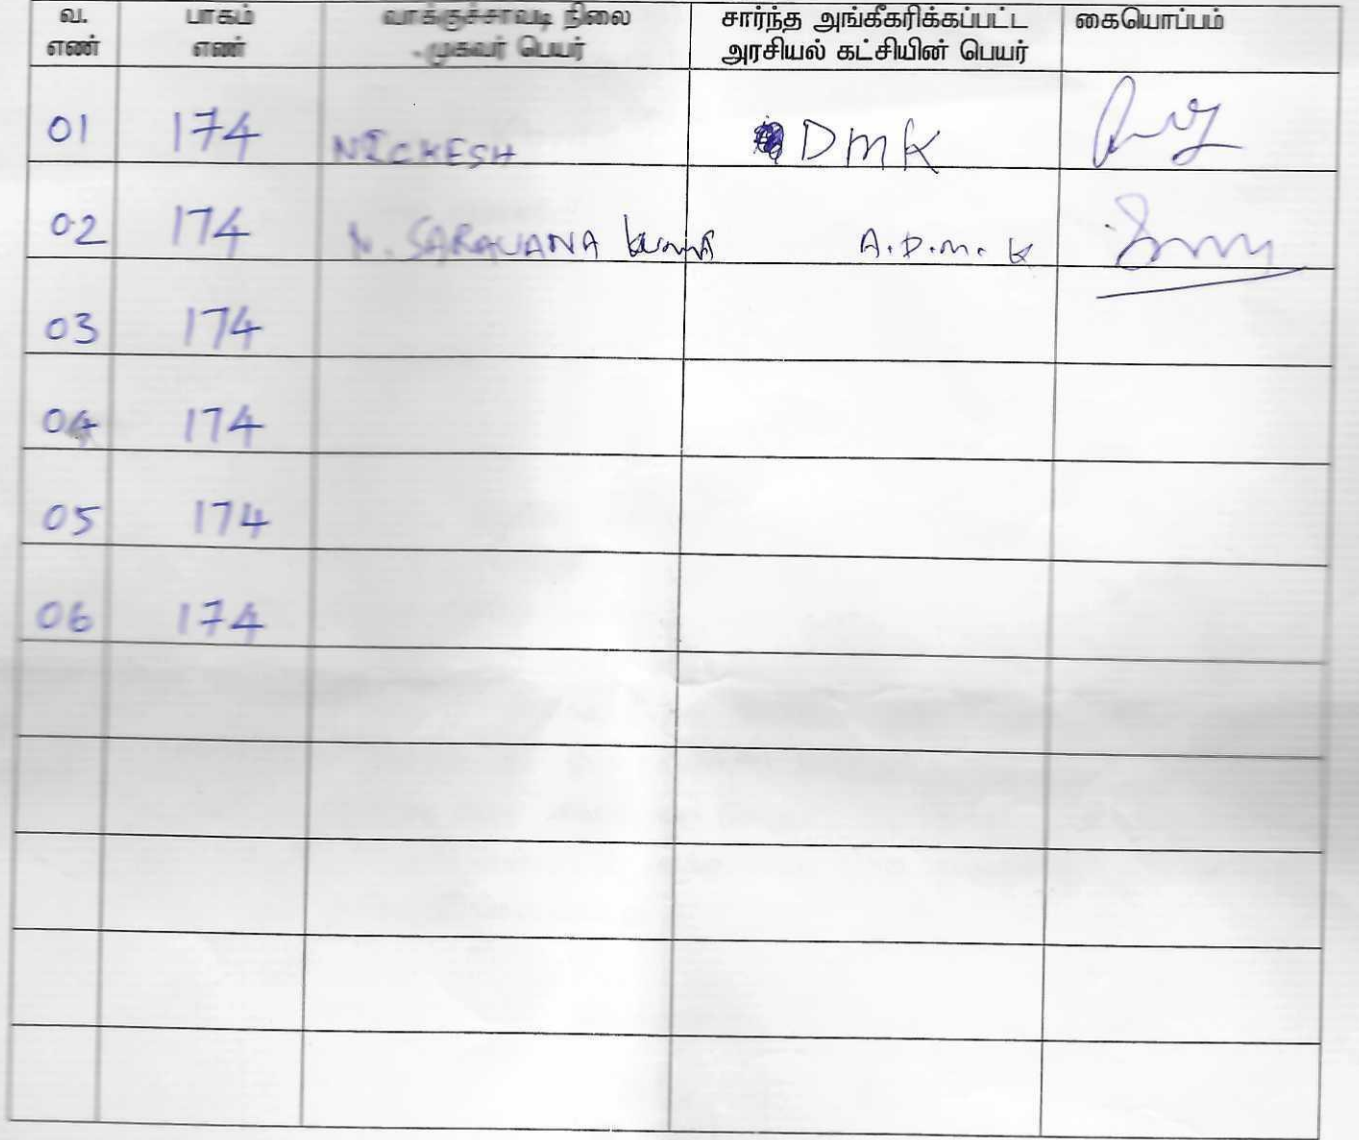 வ. எண் பாகம் எண் வாக்குச்சாவடி நிலை முகவர் பெயர் சார்ந்த அங்கீகரிக்கப்பட்ட அரசியல் கட்சியின் பெயர் கையொப்பம்
01 174 NICKESH DMK
02 174 N. SARAVANA kumar A.D.M.K
03 174
04 174
05 174
06 174